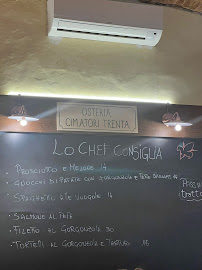 OSTERIA
CIMATORI TRENTA
LO CHEF CONSIGLIA
PROSCIUTTO E MELONE 14
GNOCCHI DI PATATA CON GORGONZOLA E
SPAGHETTO ALLE VONGOLE 16
SALMONE AI
FILETTO AL GORGONZOLA 30
TORTELLI AL GORGONZOLA E TARTUFO